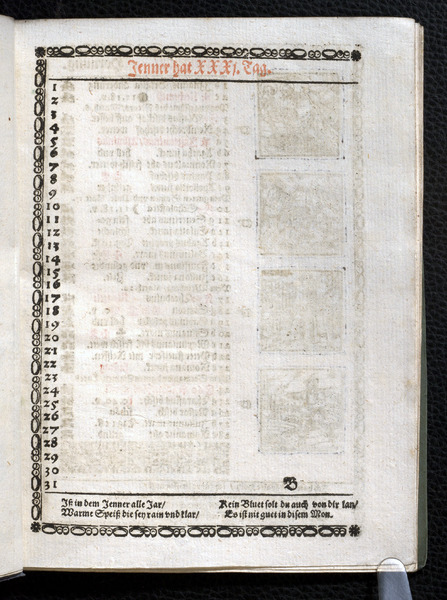 Jenner hat XXXI. Tag.
1
2
3
4
5
6
7
8
9
10
11
12
13
14
15
16
17
18
19
20
21
22
23
24
25
26
27
28
29
30
31
B
Iß in dem Jenner alle Jar/
Warme Speiß die sey rain vnd klar/
Kein Bluet solt du auch von dir lan/
Es ist nit guet in disem Mon.